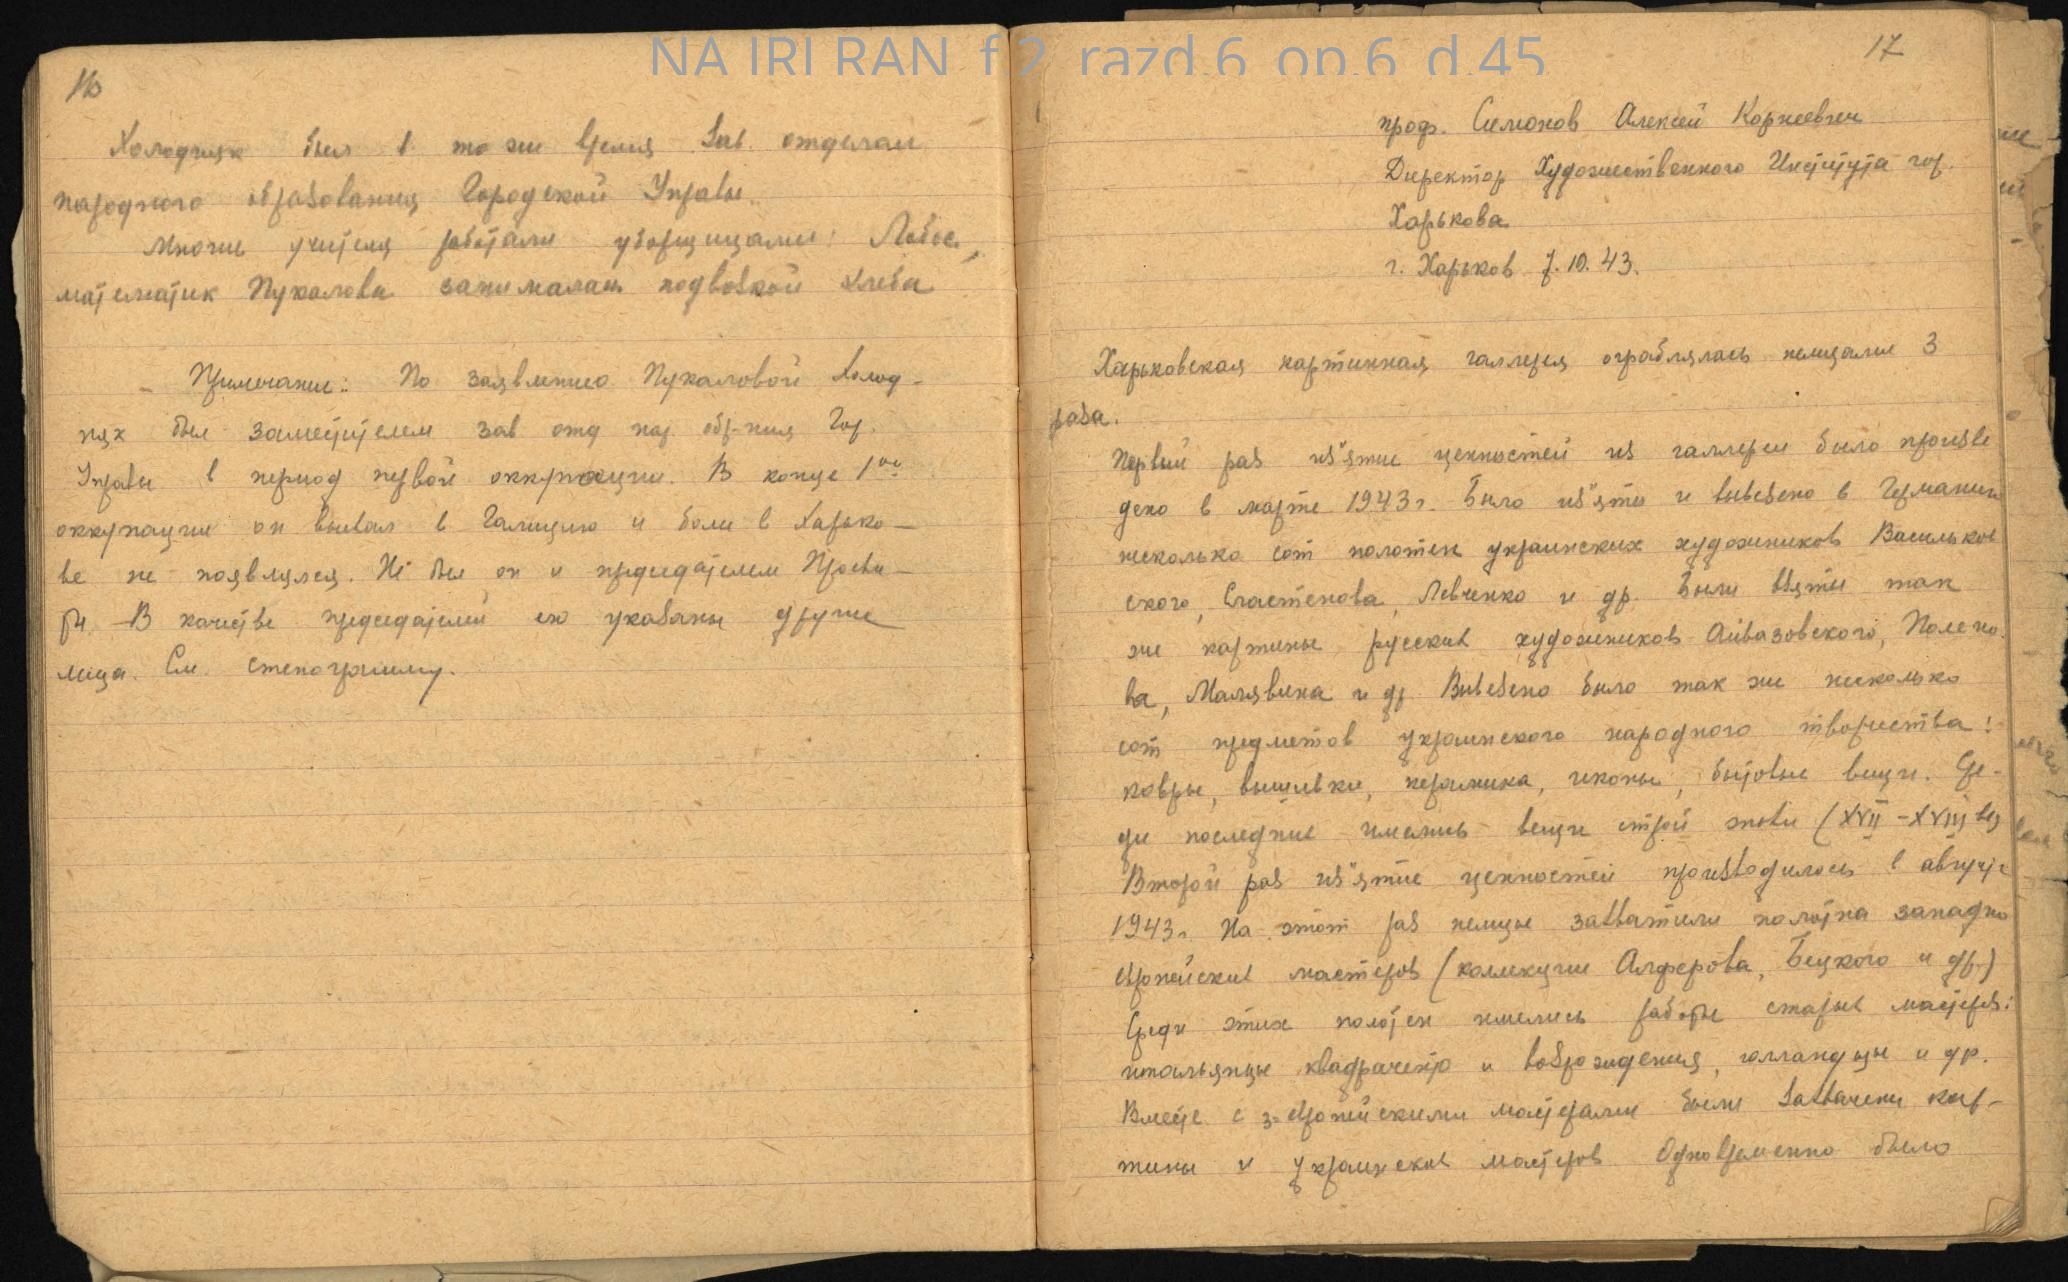 NA IRI RAN f.2 razd.6 op.6 d.45
16
Холодняк был в то же время Зав. отделом
народного образования Городской Управы.
Многие учителя работали уборщицами: Лобос,
математик Пукалова занималась подвозкой хлеба
Примечание: По заявлению Пукаловой Холод-
няк был заместителем зав отд нар. обр-ния Гор.
Управы в период первой оккупации. В конце 1ой
оккупации он выехал в Галицию и боле в Харько-
ве не появлялся. Не был он и председателем Просви-
ты. В качестве председателей ея указаны другие
лица. См. стенограмму.
17
проф. Симонов Алексей Корнеевич
Директор Художественного Института гор.
Харькова
г. Харьков 7.10.43.
Харьковская картинная галлерея ограблялась немцами 3
раза.
Первый раз из"ятие ценностей из галлереи было произве
дено в марте 1943г. Было из"ято и вывезено в Германию
несколько сот полотен украинских художников Васильков
ского, Сластенова, Левченко и др. Были взяты так
же картины русских художников Айвазовского, Полено
ва, Малявина и др Вывезено было так же несколько
сот предметов украинского народного творчества:
ковры, вышивки, керамика, иконы, бытовые вещи. Сре-
ди последних имелись вещи старой эпохи (XVII-XVIII вв)
Второй раз из"ятие ценностей производилось в августе
1943г. На этот раз немцы захватили полотна западно
европейских мастеров (коллекции Алферова, Бецкого и др.)
Среди этих полотен имелись работы старых мастеров:
итальянцы квадраченто и возрождения, голландцы и др.
Вместе с з-европейскими мастерами были захвачены кар-
тины и украинских мастеров Одновременно было